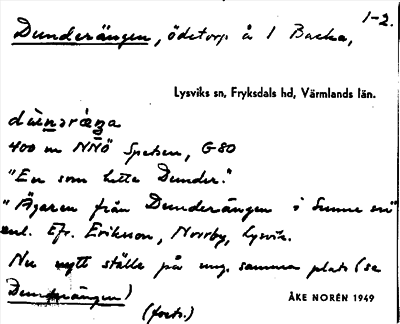 1-2.
Dunderängen, ödetorp å 1 Backa,
Lysviks sn, Fryksdals hd, Värmlands län.
400 m NNÖ Spetsen, G80
"En som hette Dunder."
"Ägaren från Dunderängen i Sunne sn"
enl. Efr. Eriksson, Norrby, Lysvik.
Nu nytt ställe på ung. samma plats (se
Dunderängen)
(forts.)
ÅKE NORÉN 1949